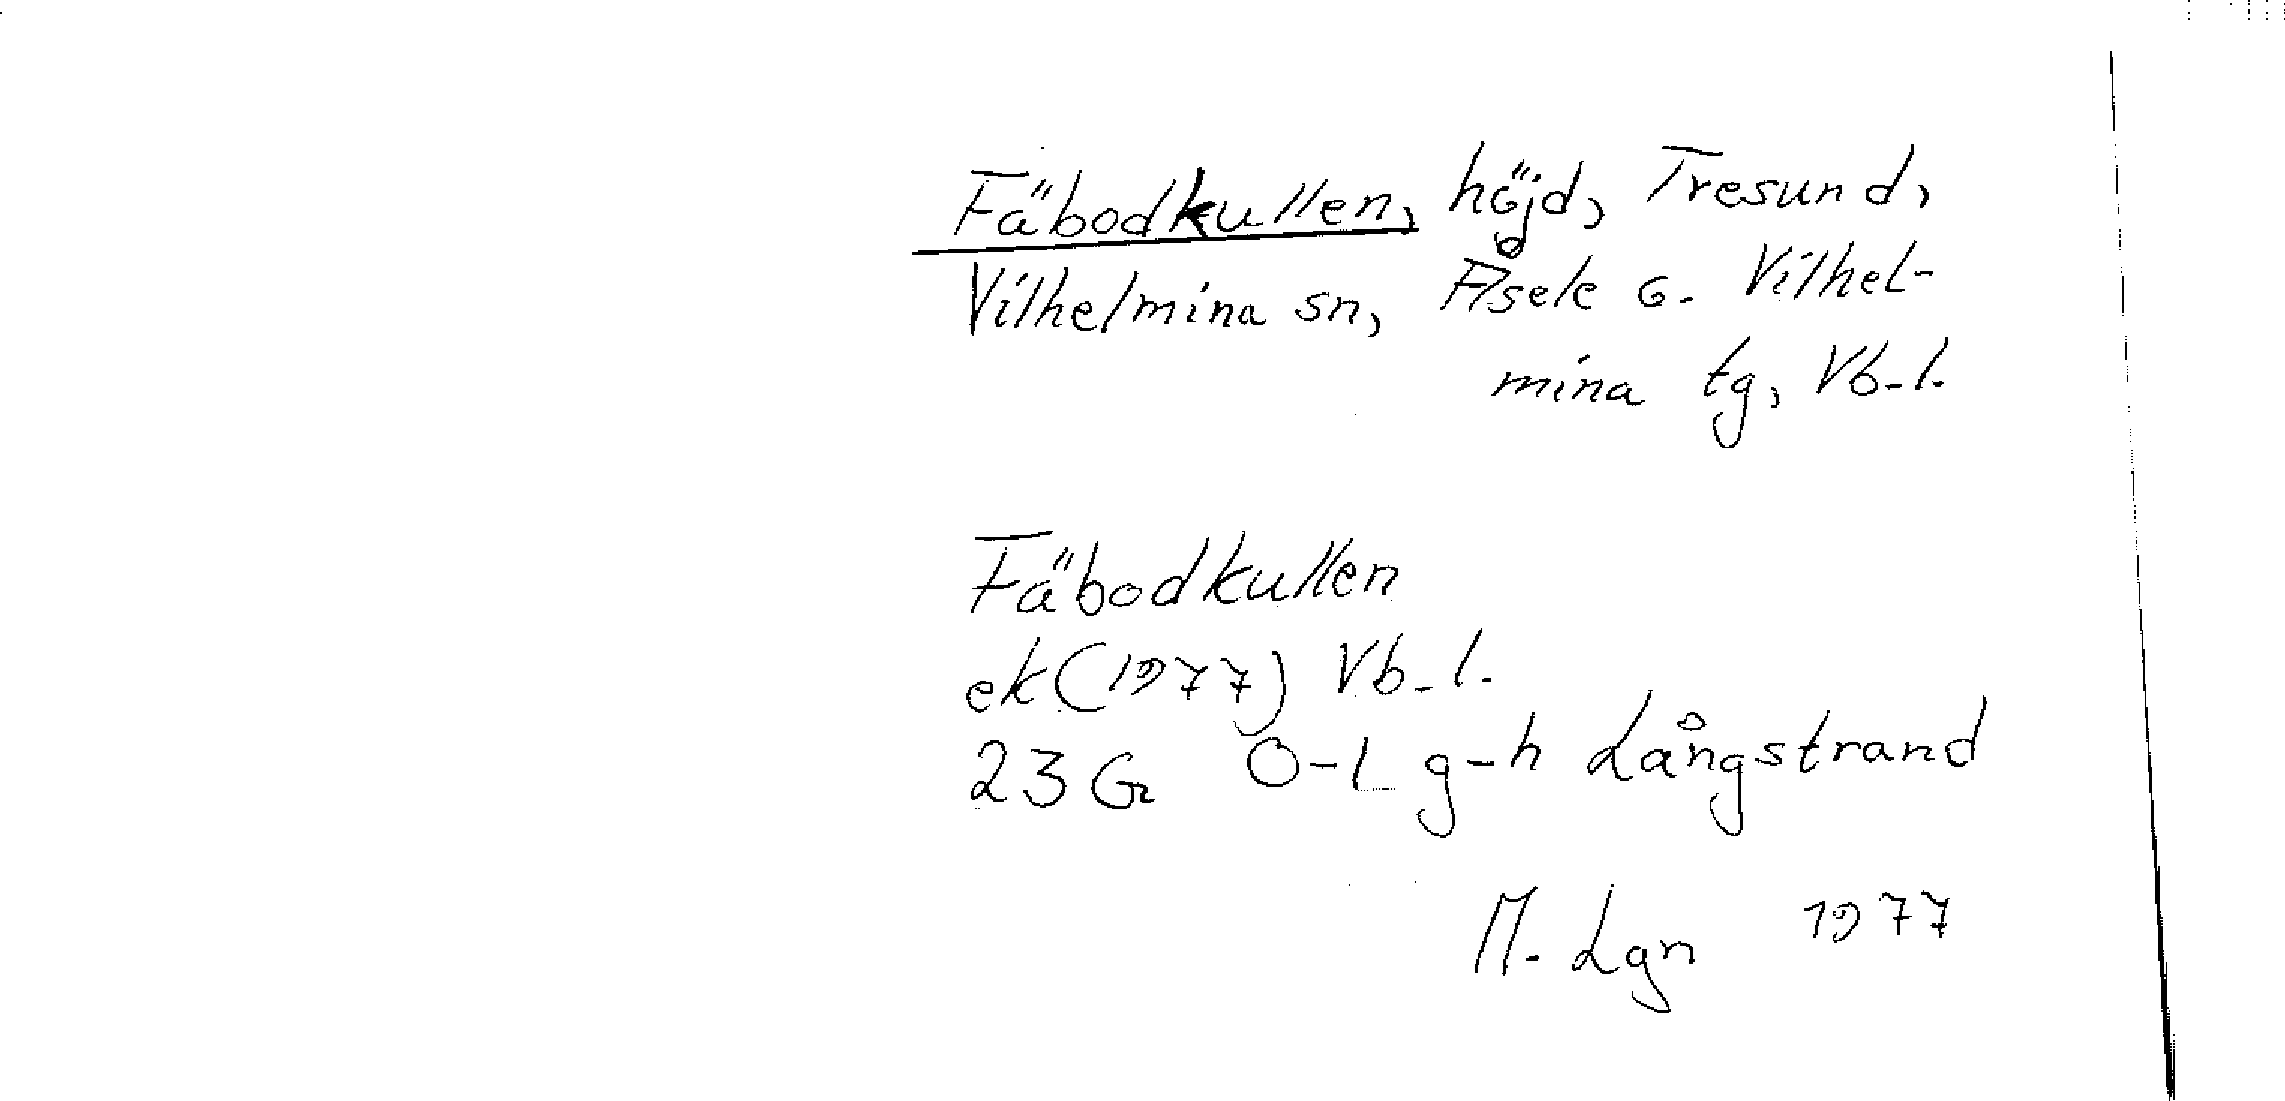 Fäbodkullen, höjd, Tresund,
Vilhelmina sn, Åsele o. Vilhel-
mina tg, Vb-l.
Fäbodkullen
ek (1977) Vb-l.
23 G 0-1 g-h Långstrand
M. Lgn 1977